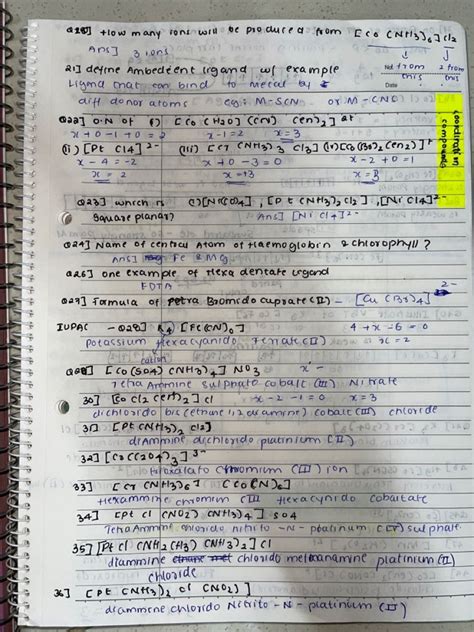 Q20] How many ions will be produced from [Co(NH3)6]Cl2
Ans] 3 ions
1 from this 2 from this
21] define Ambedent ligand w/ example
Ligand that can bind to metal by
diff donor atoms eg: M-SCN or M-CNS
Date
coordination compounds
Q22] O.N of i) [Co(H2O)(CN)(en)2]2+
x+0-1+0=2 x-1=2 x=3
(ii) [PtCl4]2- (iii) [Cr(NH3)3Cl3] (iv)[Co(Br)2(en)2]+
x-4=-2 x+0-3=0 x-2+0=1
x=2 x=+3 x=3
Q23] which is (i)[Ni(CO)4], [Pt(NH3)2Cl2], [NiCl4]2-
square planar? Ans] [NiCl4]2-
Q24] Name of central Atom of Haemoglobin & chlorophyll?
Ans] Fe & Mg
Q26] one example of Hexa dentate ligand
EDTA
Q27] Formula of tetra Bromido cuprate(II) - [Cu(Br)4]2-
IUPAC - Q28] K4[Fe(CN)6] 4+x-6=0
Potassium Hexacyanido ferrate(II) x=2
cation
Q28] [Co(SO4)(NH3)4]NO3 x-
Tetra Ammine sulphato cobalt(III) Nitrate
30] [CoCl2(en)2]Cl x-2-1=0 x=3
dichlorido bis(ethane 1,2 diamine) cobalt(III) chloride
31] [Pt(NH3)2Cl2]
diAmmine dichlorido platinium(II)
32] [Cr(C2O4)3]3-
trioxalato chromium(III) ion
33] [Cr(NH3)6][Co(CN)6]
Hexammine chromium(III) Hexacynido cobaltate
34] [PtCl(NO2)(NH3)4]SO4
Tetra Ammine chlorido nitrito-N-platinum(IV) sulphate
35] [PtCl(NH2CH3)(NH3)2]Cl
diammine chlorido methanamine platinum(II)
chloride
36] [Pt(NH3)2Cl(NO2)]
diammine chlorido Nitrito-N-platinium(II)